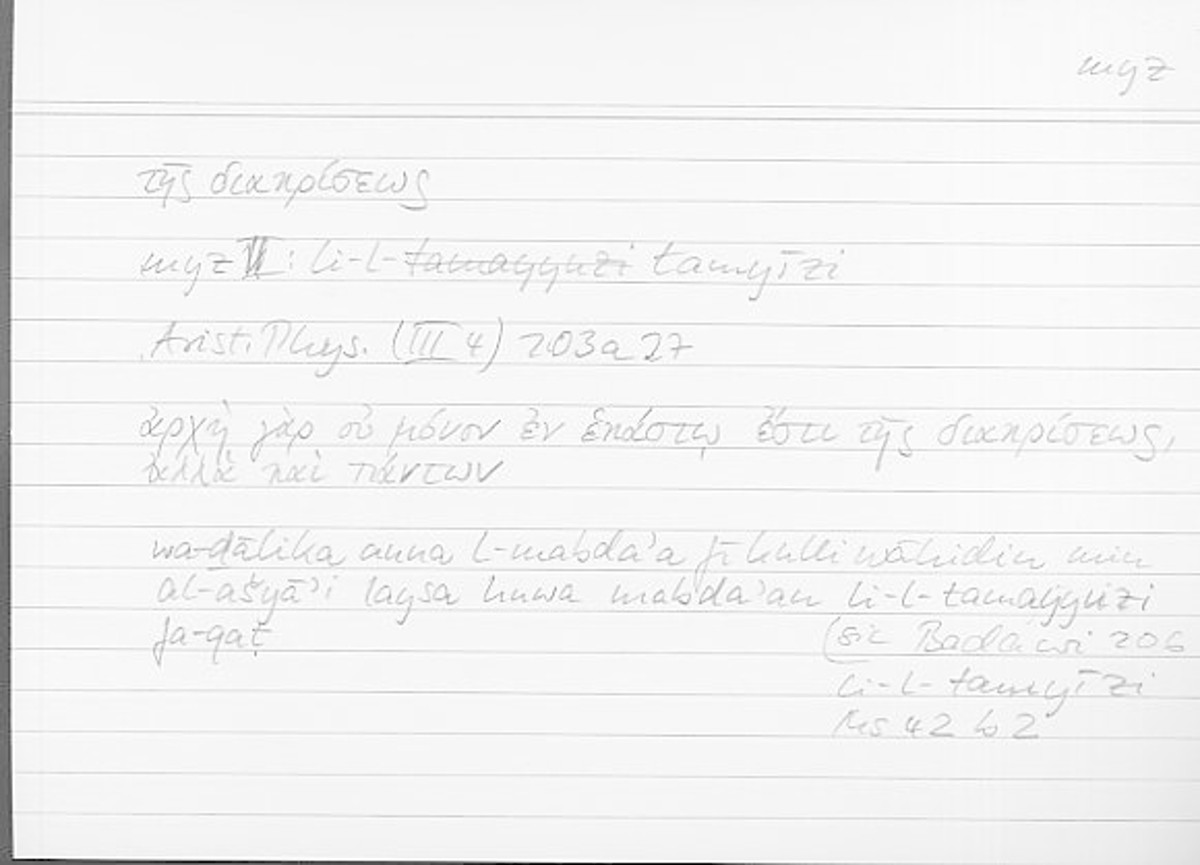 myz
τῆς διακρίσεως
myz II: li-l-tamayyuzi tamyīzi
Arist. Phys. (III 4) 203a27
ἀρχὴ γὰρ οὐ μόνον ἐν ἑκάστῳ ἔστι τῆς διακρίσεως,
ἀλλὰ καὶ πάντων
wa-ḏālika anna l-mabda'a fī kulli wāḥidin min
al-ašyā'i laysa huwa mabda'an li-l-tamayyuzi
fa-qaṭ
(sic Badawi 206
li-l-tamyīzi
Ms 42 b 2